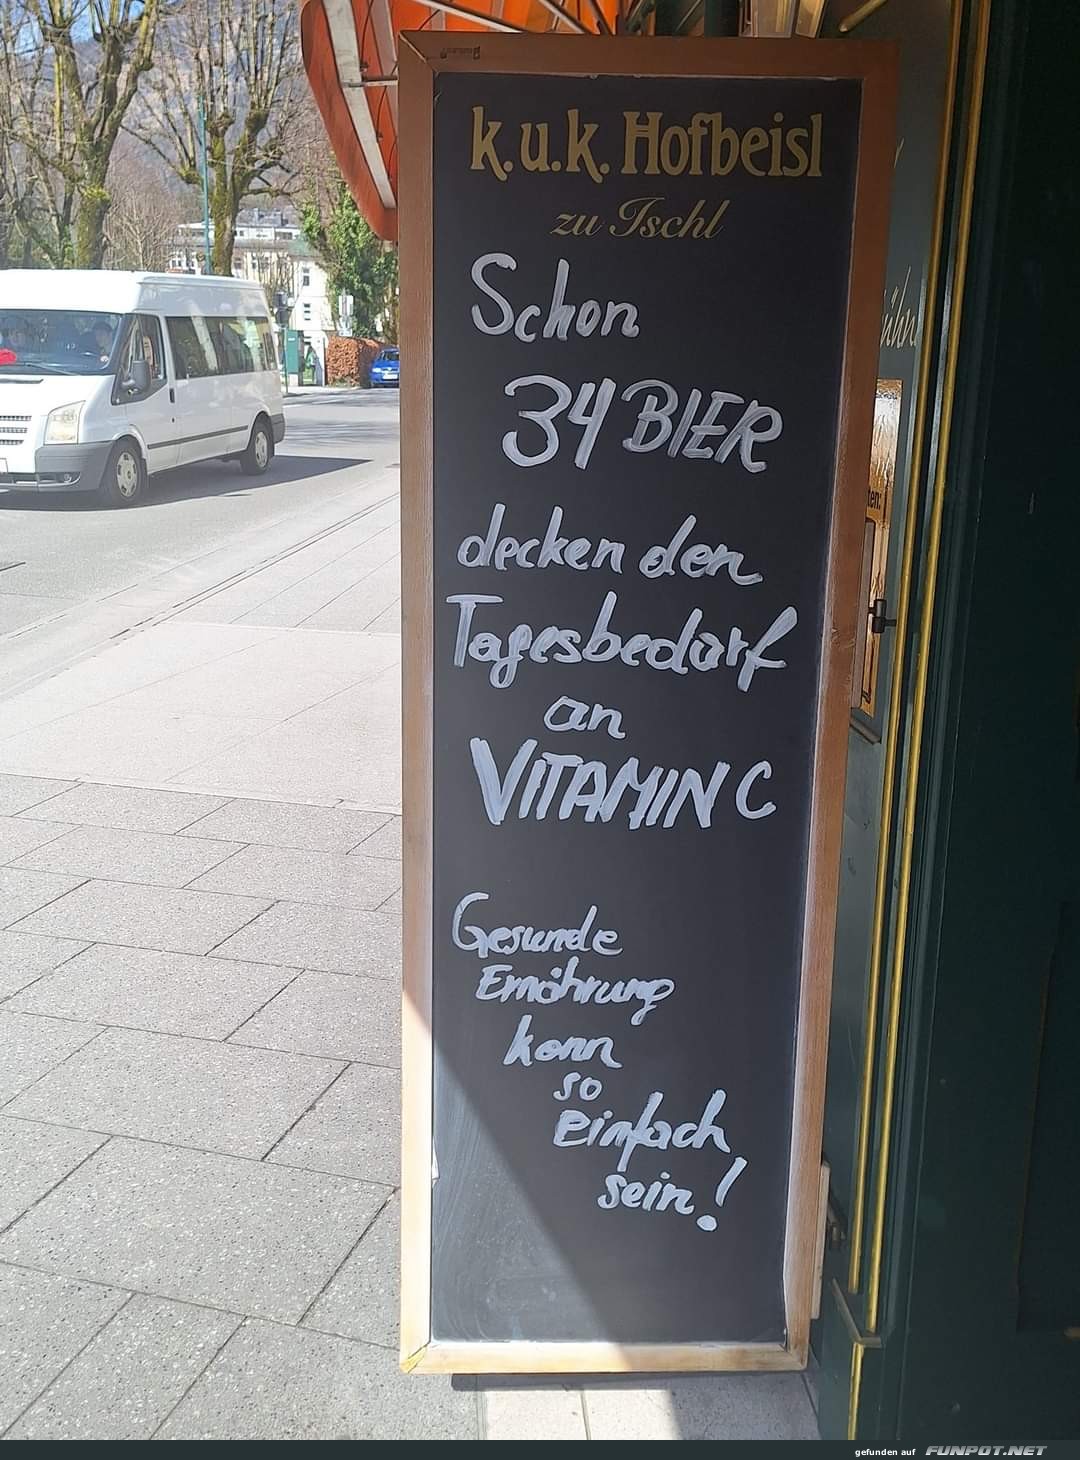 k.u.k. Hofbeisl
zu Ischl
Schon
34 BIER
decken den
Tagesbedarf
an
VITAMIN C
Gesunde
Ernährung
kann
so
einfach
sein!
gefunden auf FUNPOT.NET